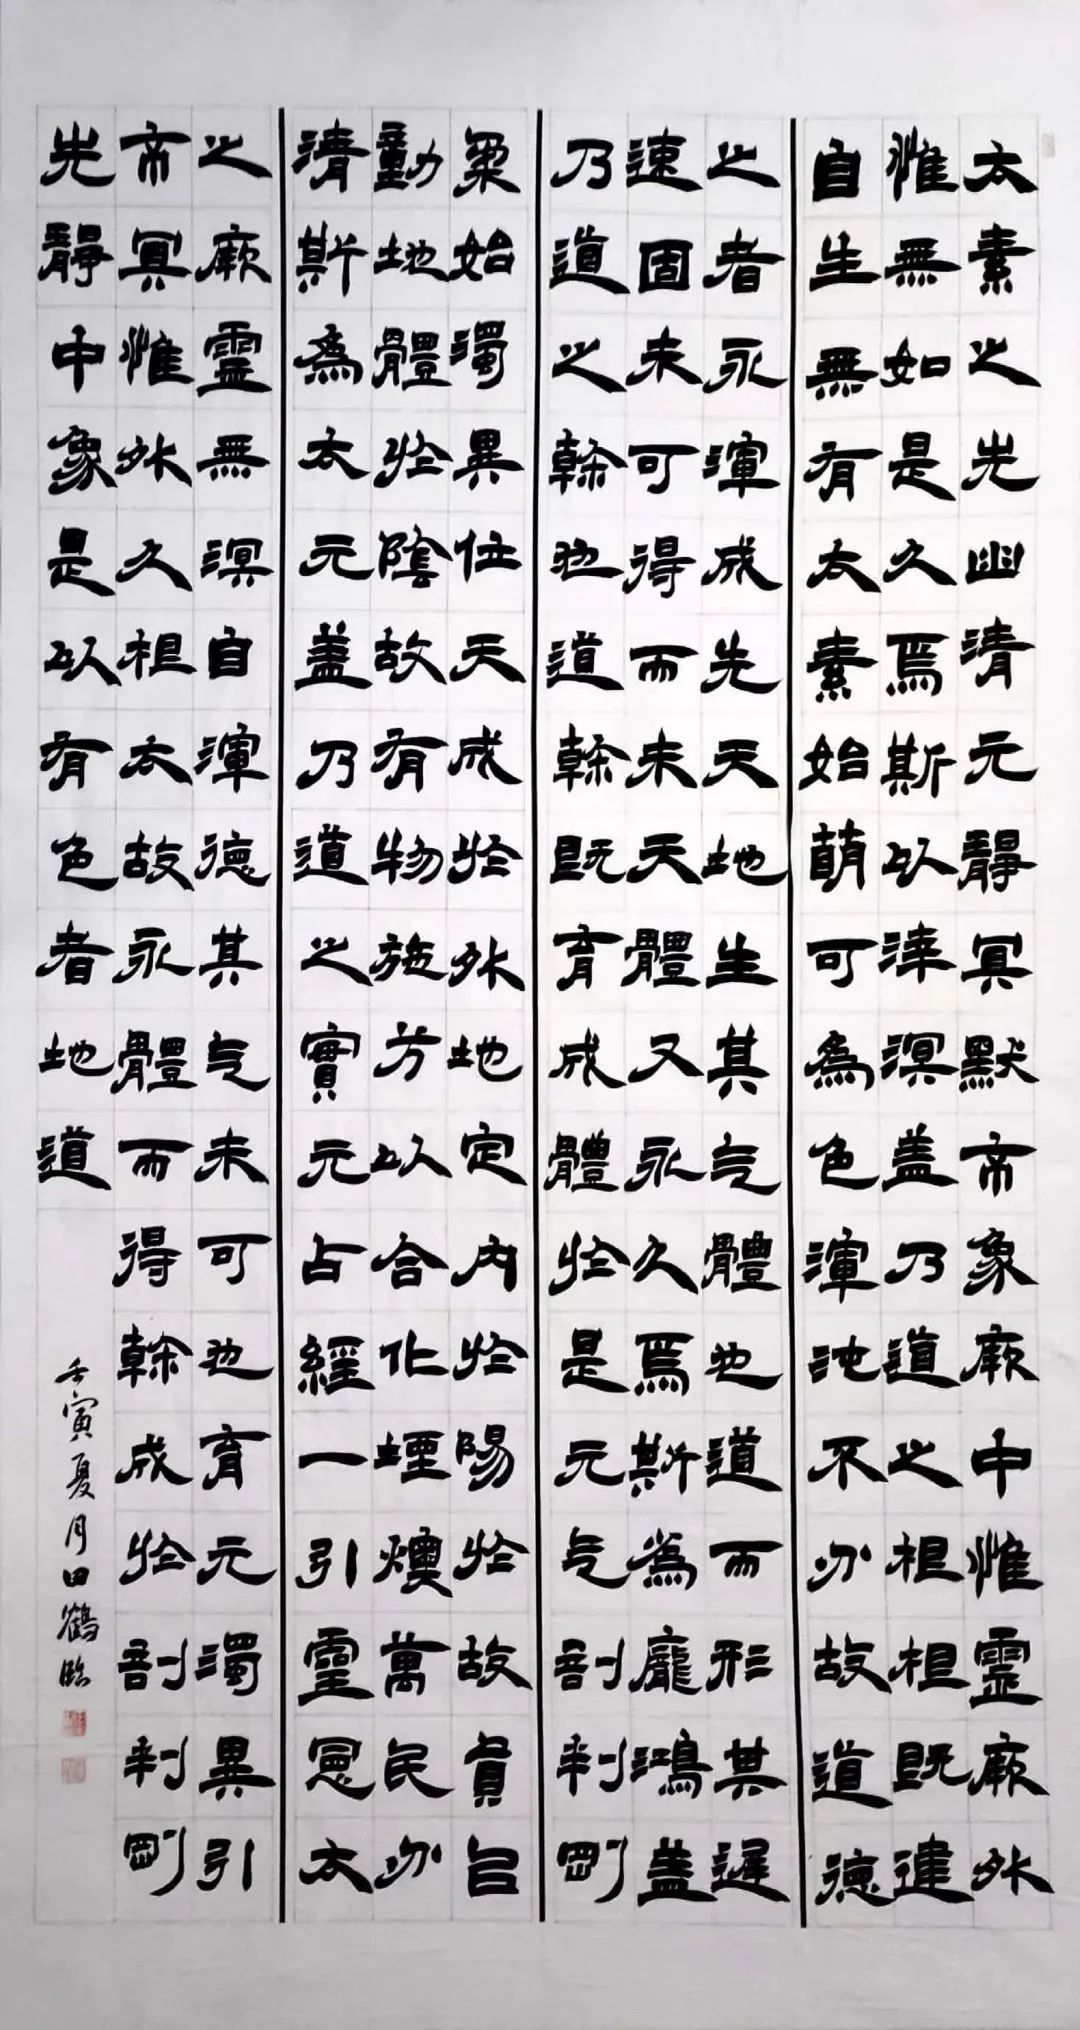 太素之先幽清元靜冥默帝象厥中惟靈厥外
惟無如是久焉斯以涬溟盖乃道之根根既建
自生無有太素始萌可為色渾沌不分故道德
之者永渾成先天地生其气體也道而形其遲
速固未可得而未天體又永久焉斯為龐鴻盖
乃道之幹也道幹既育成體於是元气剖判剛
柔始濁異位天成於外地定內於陽於故員以
動地體於陰故有物施方以合化堙燠萬民分
清斯為太元盖乃道之實元占經一引靈憲太
之厥靈無溟自渾德其气未可也育元濁異引
帝冥惟外久根太故永體而得幹成於剖判剛
先靜中象是以有色者地道
壬寅夏月田鶴臨